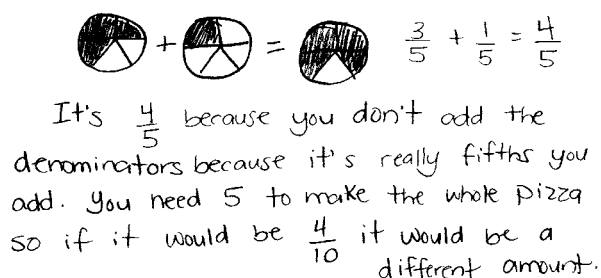 + = 3/5 + 1/5 = 4/5
It's 4/5 because you don't add the
denominators because it's really fifths you
add. You need 5 to make the whole pizza
so if it would be 4/10 it would be a
different amount.